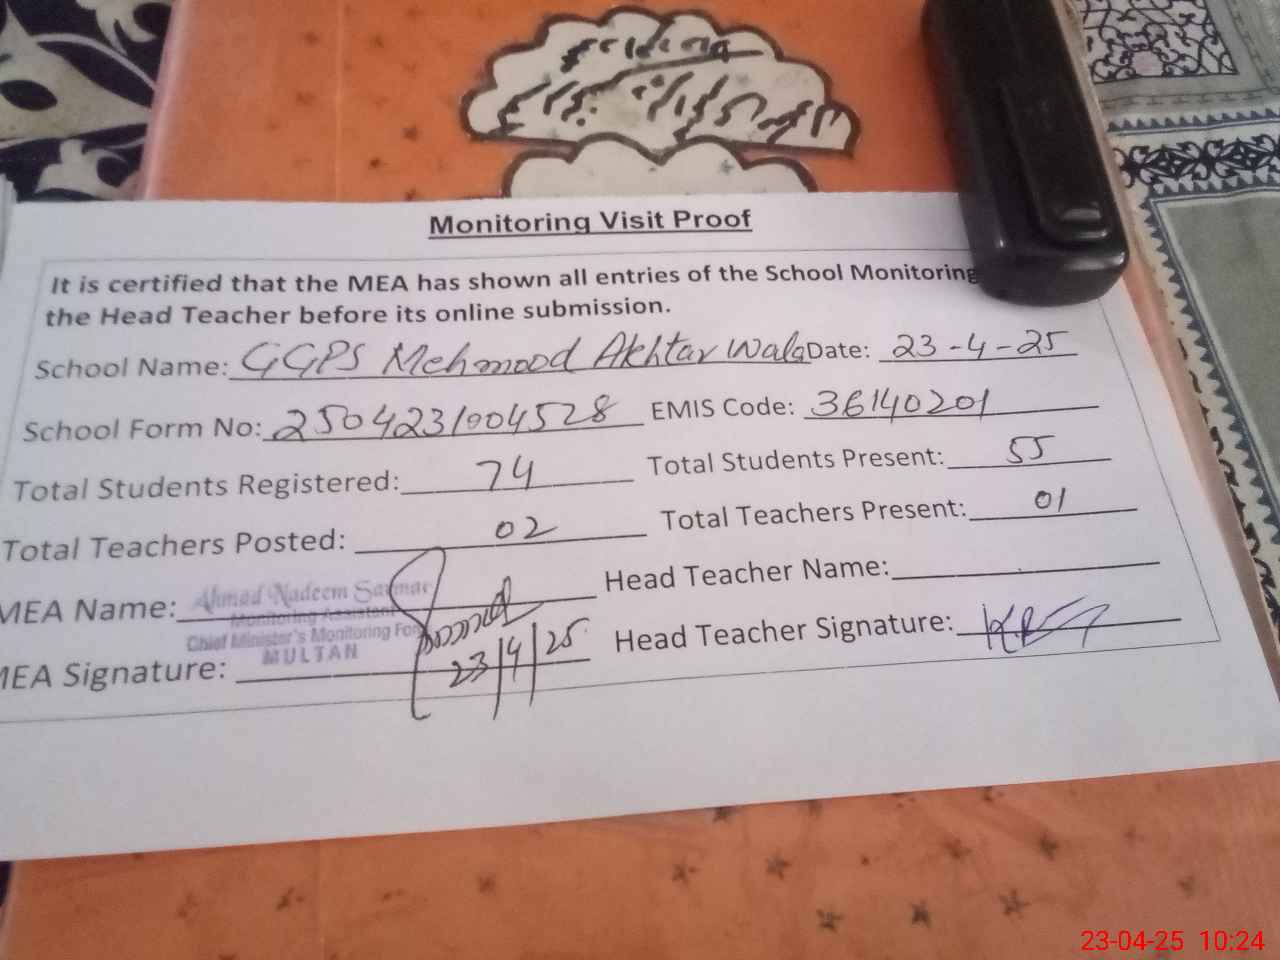 Monitoring Visit Proof
It is certified that the MEA has shown all entries of the School Monitoring
the Head Teacher before its online submission.
School Name: GGPS Mehmood Akhtar Wala Date: 23-4-25
School Form No: 2504231004528 EMIS Code: 36140201
Total Students Registered: 74 Total Students Present: 55
Total Teachers Posted: 02 Total Teachers Present: 01
MEA Name: Ahmad Nadeem Head Teacher Name:
Monitoring Assistant
Chief Minister's Monitoring For
MULTAN
MEA Signature: 23/4/25 Head Teacher Signature:
23-04-25 10:24